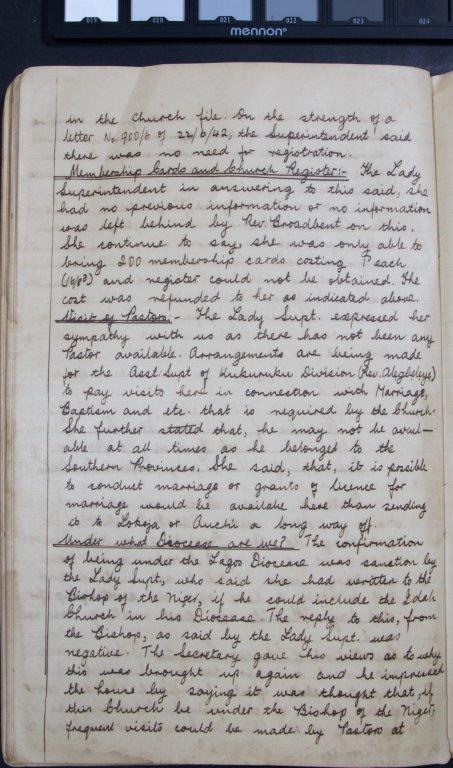 019 020 021 022 023 024
mennon
in the Church file. On the strength of a
letter No. 900/6 of 22/6/42, the Superintendent said
there was no need for registration.
Membership Cards and Church Register:- The Lady
Superintendent in answering to this said, she
had no previous information or no information
was left behind by Rev. Broadbent on this.
She continue to say, she was only able to
bring 200 membership cards costing 1d each
(16/8d) and register could not be obtained. The
cost was refunded to her as indicated above.
Visit of Pastors:- The Lady Supt. expressed her
sympathy with us as there has not been any
Pastor available. Arrangements are being made
for the Asst. Supt of Kukuruku Division (Rev. Alegbeleye)
to pay visits here in connection with Marriage,
Baptism and etc. that is required by the Church.
She further stated that, he may not be avail-
able at all times as he belonged to the
Southern Provinces. She said, that, it is possible
to conduct marriage or grants of licence for
marriage would be availabe here than sending
it to Lokoja or Auchi a long way off.
Under what Diocease are we? The confirmation
of being under the Lagos Diocease was sanction by
the Lady Supt, who said she had written to the
Bishop of the Niger, if he could include the Idah
Church in his Diocease. The reply to this, from
the Bishop, as said by the Lady Supt. was
negative. The Secretary gave his views as to why
this was brought up again and he impressed
the house by saying it was thought that, if
this Church be under the Bishop of the Niger,
frequent visits could be made by Pastors at